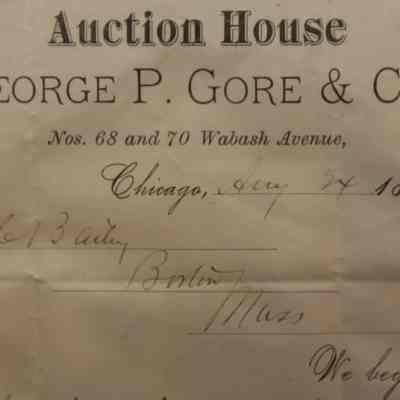 Auction House
EORGE P. GORE & C
Nos. 68 and 70 Wabash Avenue,
Chicago, Aug 24 18
Bailey
Boston
Mass
We beg